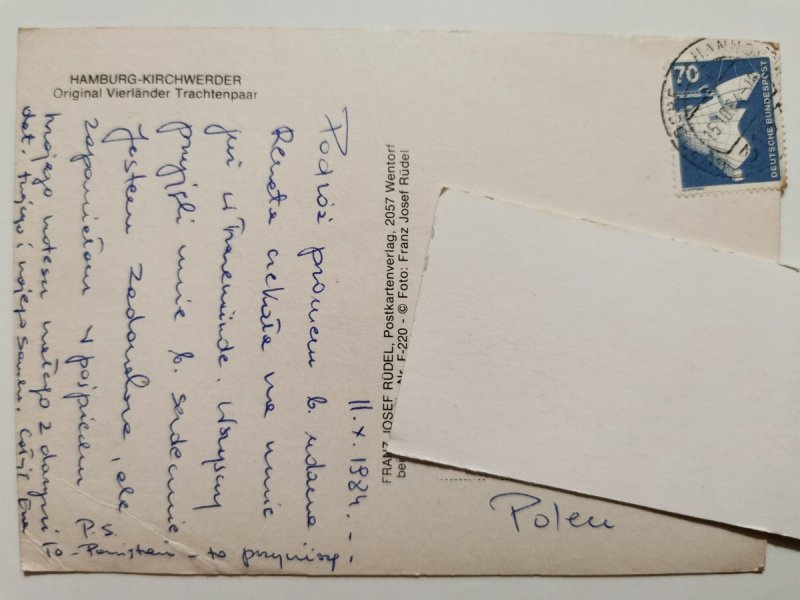 HAMBURG-KIRCHWERDER
Original Vierländer Trachtenpaar
70
DEUTSCHE BUNDESPOST
FRANZ JOSEF RÜDEL, Postkartenverlag, 2057 Wentorf
Nr. F-220 - © Foto: Franz Josef Rüdel
11.X.1984.
Podróż promem b. udana
Renata czekała na mnie
już w Travemünde. Wszyscy
przyjęli mnie b. serdecznie
Jestem zadowolona, ale
zapomniałam w pośpiechu
mojego notesu małego z danymi
dot. twojego i mojego
Ewa
P.S.
to przyniosę
Polen